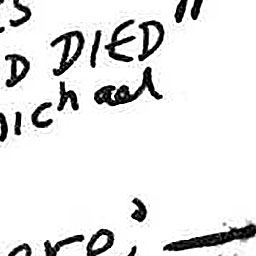 S "
D DIED
michael
ere, —